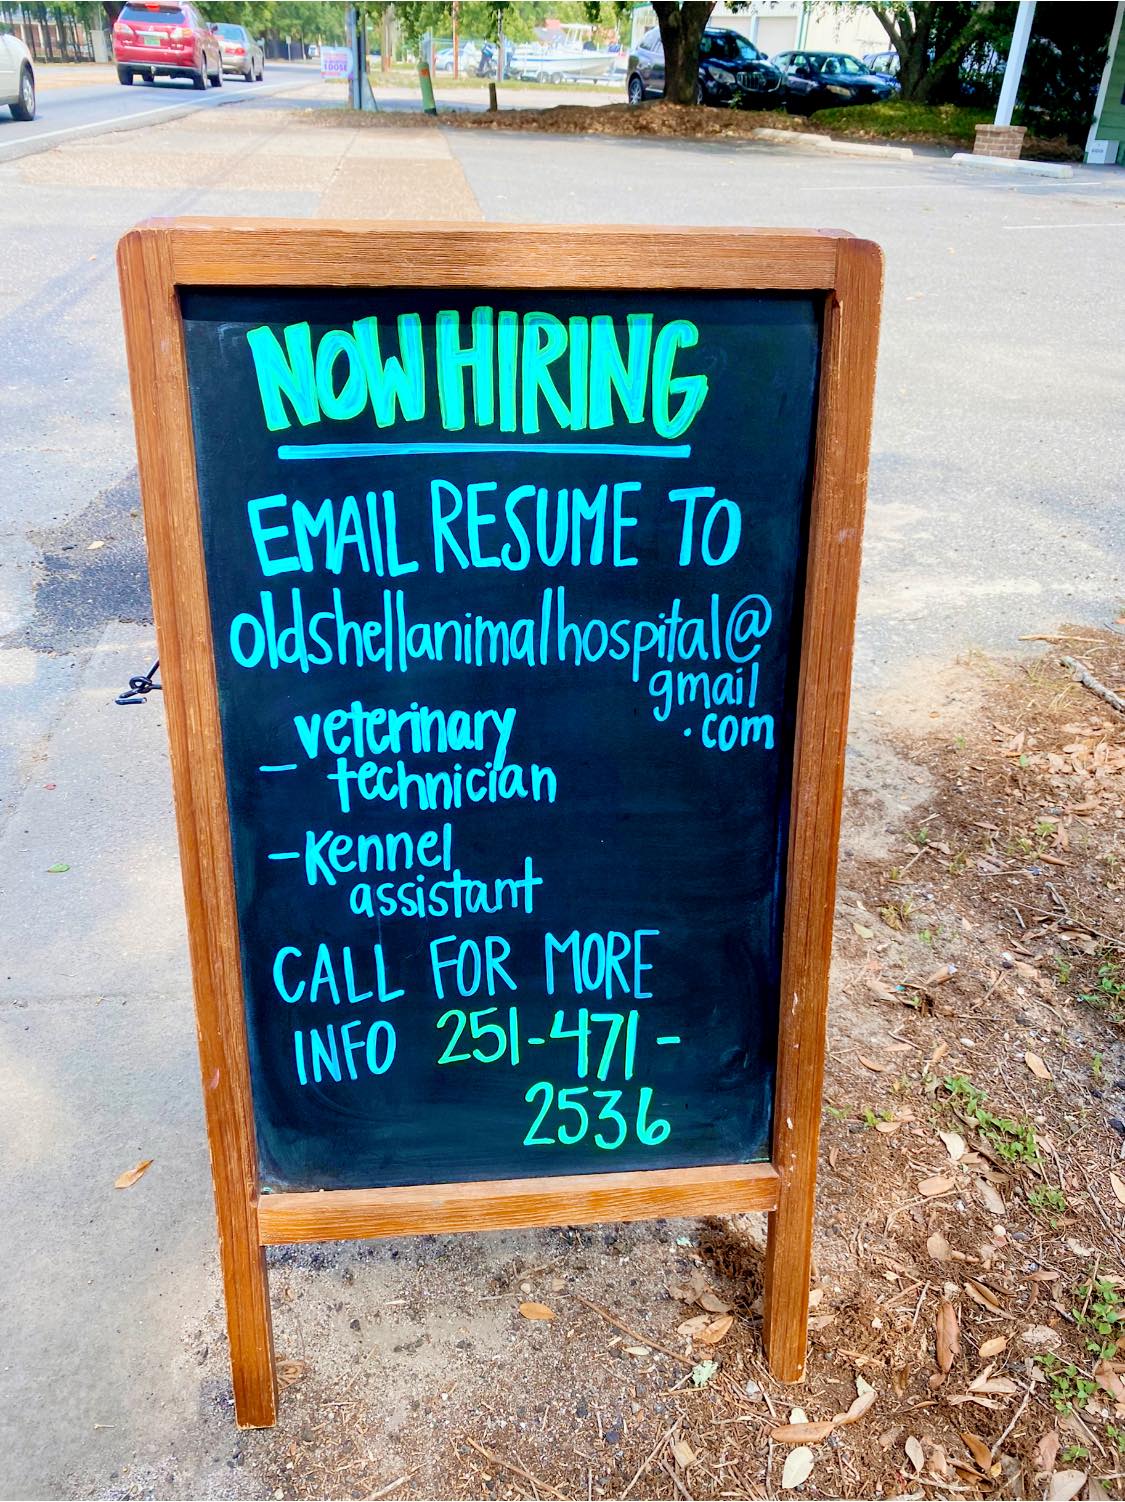 NOW HIRING
EMAIL RESUME TO
oldshellanimalhospital@
gmail
.com
- veterinary
technician
- Kennel
assistant
CALL FOR MORE
INFO 251-471-
2536